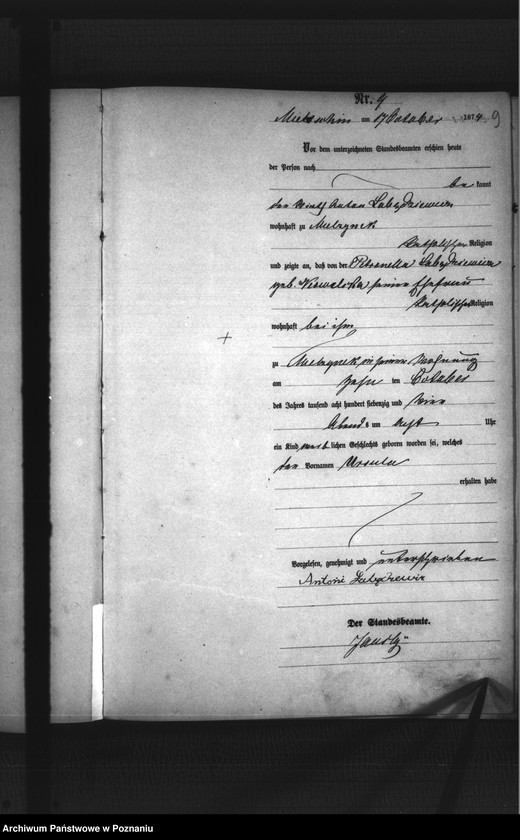 Nr. 9
am 17 October 1874 9
Vor dem unterzeichneten Standesbeamten erschien heute
der Person nach
be kannt
der Wirth Anton Labędziewicz
wohnhaft zu Mielzynek
katholischer Religion
und zeigte an, daß von der Petronella Labędziewicz
geb. Kowalska seiner Ehefrau
katholischer Religion
wohnhaft bei ihm
zu Mielzynek in seiner Wohnung
am zehn ten October
des Jahres tausend acht hundert siebenzig und vier
Abend s um acht Uhr
ein Kind weib lichen Geschlechts geboren worden sei, welches
den Vornamen Ursula
erhalten habe
Vorgelesen, genehmigt und unterschrieben
Antoni Labędziewicz
Der Standesbeamte.
Archiwum Państwowe w Poznaniu